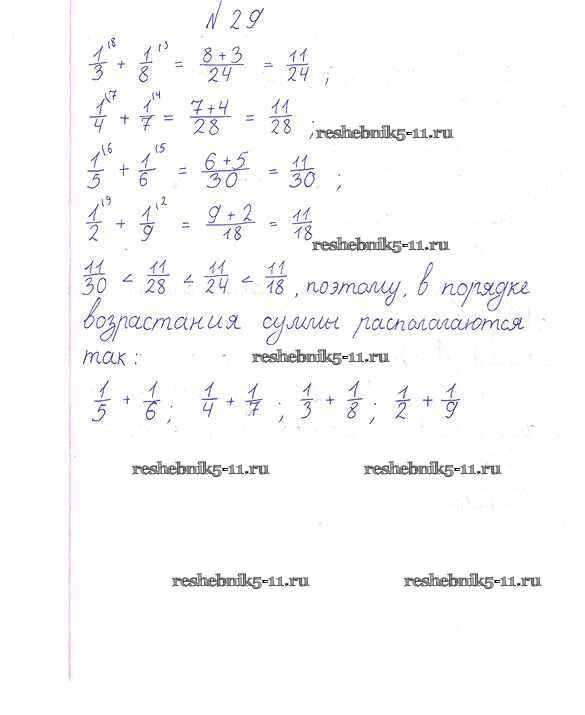 № 29
1/3 \8 + 1/8 \3 = 8+3/24 = 11/24 ;
1/4 \7 + 1/7 \4 = 7+4/28 = 11/28 ; reshebnik5-11.ru
1/5 \6 + 1/6 \5 = 6+5/30 = 11/30 ;
1/2 \9 + 1/9 \2 = 9+2/18 = 11/18
reshebnik5-11.ru
11/30 < 11/28 < 11/24 < 11/18, поэтому, в порядке
возрастания суммы располагаются
так: reshebnik5-11.ru
1/5 + 1/6 ; 1/4 + 1/7 ; 1/3 + 1/8 ; 1/2 + 1/9
reshebnik5-11.ru reshebnik5-11.ru
reshebnik5-11.ru reshebnik5-11.ru